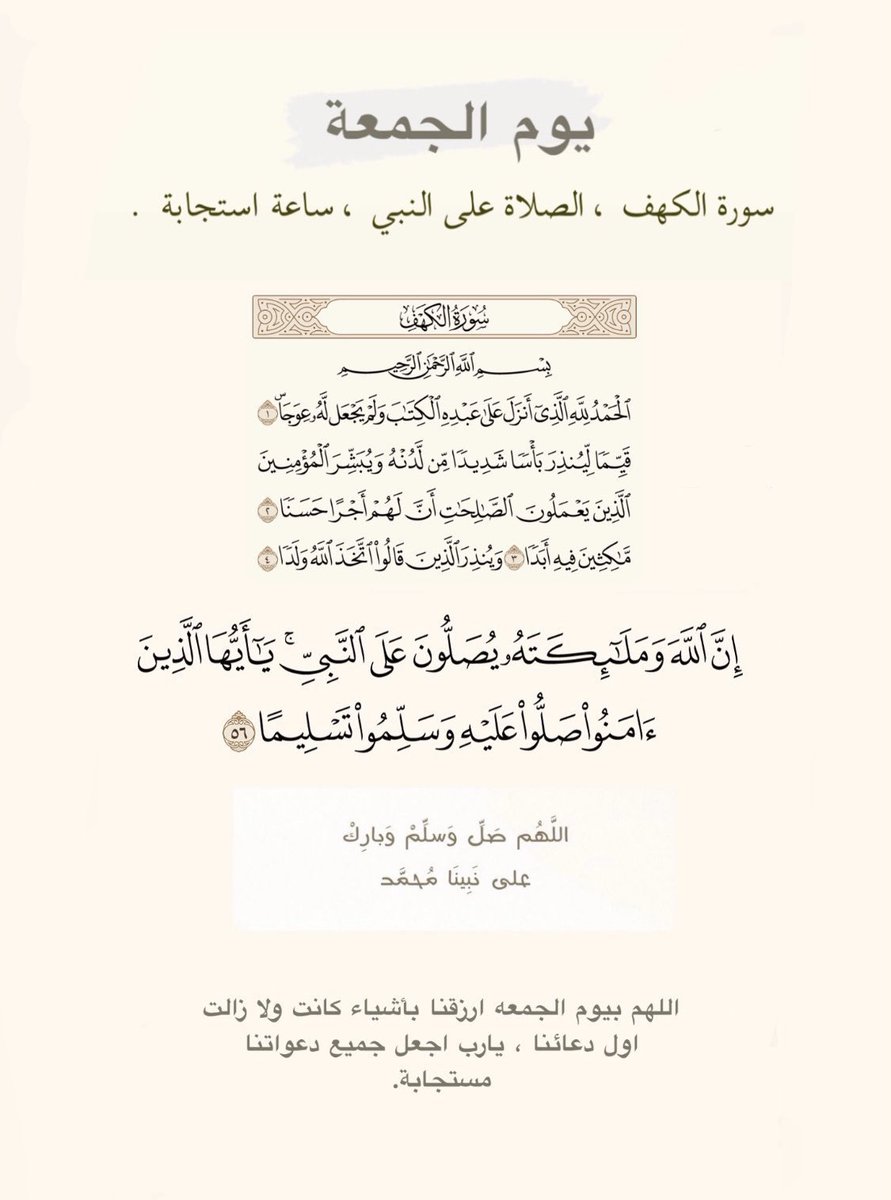 يوم الجمعة
سورة الكهف ، الصلاة على النبي ، ساعة استجابة .
سُورَةُ الكَهۡفِ
بِسۡمِ ٱللَّهِ ٱلرَّحۡمَٰنِ ٱلرَّحِيمِ
ٱلۡحَمۡدُ لِلَّهِ ٱلَّذِيٓ أَنزَلَ عَلَىٰ عَبۡدِهِ ٱلۡكِتَٰبَ وَلَمۡ يَجۡعَل لَّهُۥ عِوَجَاۜ ١
قَيِّمٗا لِّيُنذِرَ بَأۡسٗا شَدِيدٗا مِّن لَّدُنۡهُ وَيُبَشِّرَ ٱلۡمُؤۡمِنِينَ
ٱلَّذِينَ يَعۡمَلُونَ ٱلصَّٰلِحَٰتِ أَنَّ لَهُمۡ أَجۡرًا حَسَنٗا ٢
مَّٰكِثِينَ فِيهِ أَبَدٗا ٣ وَيُنذِرَ ٱلَّذِينَ قَالُواْ ٱتَّخَذَ ٱللَّهُ وَلَدٗا ٤
إِنَّ ٱللَّهَ وَمَلَٰٓئِكَتَهُۥ يُصَلُّونَ عَلَى ٱلنَّبِيِّۚ يَٰٓأَيُّهَا ٱلَّذِينَ
ءَامَنُواْ صَلُّواْ عَلَيۡهِ وَسَلِّمُواْ تَسۡلِيمًا ٥٦
اللَّهُم صَلِّ وَسلِّمْ وَبارِكْ
على نَبِينَا مُحمَّد
اللهم بيوم الجمعه ارزقنا بأشياء كانت ولا زالت
اول دعائنا ، يارب اجعل جميع دعواتنا
مستجابة.